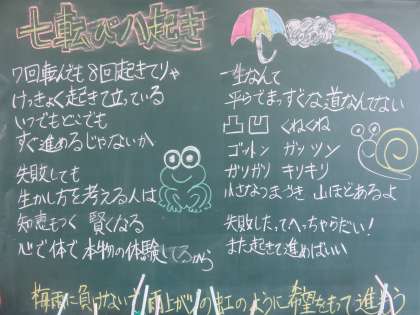 七転び八起き
7回転んでも8回起きてりゃ
けっきょく起きて立っている
いつでもどこでも
すぐ進めるじゃないか
失敗しても
生かし方を考える人は
知恵もつく 賢くなる
心で体で本物の体験してるから
一生なんて
平らでまっすぐな道なんてない
凸凹 くねくね
ゴットン ガッツン
ガリガリ キリキリ
小さなつまづき 山ほどあるよ
失敗したってへっちゃらだい!
また起きて進めばいい
梅雨に負けないで 雨上がりの虹のように希望をもって進もう